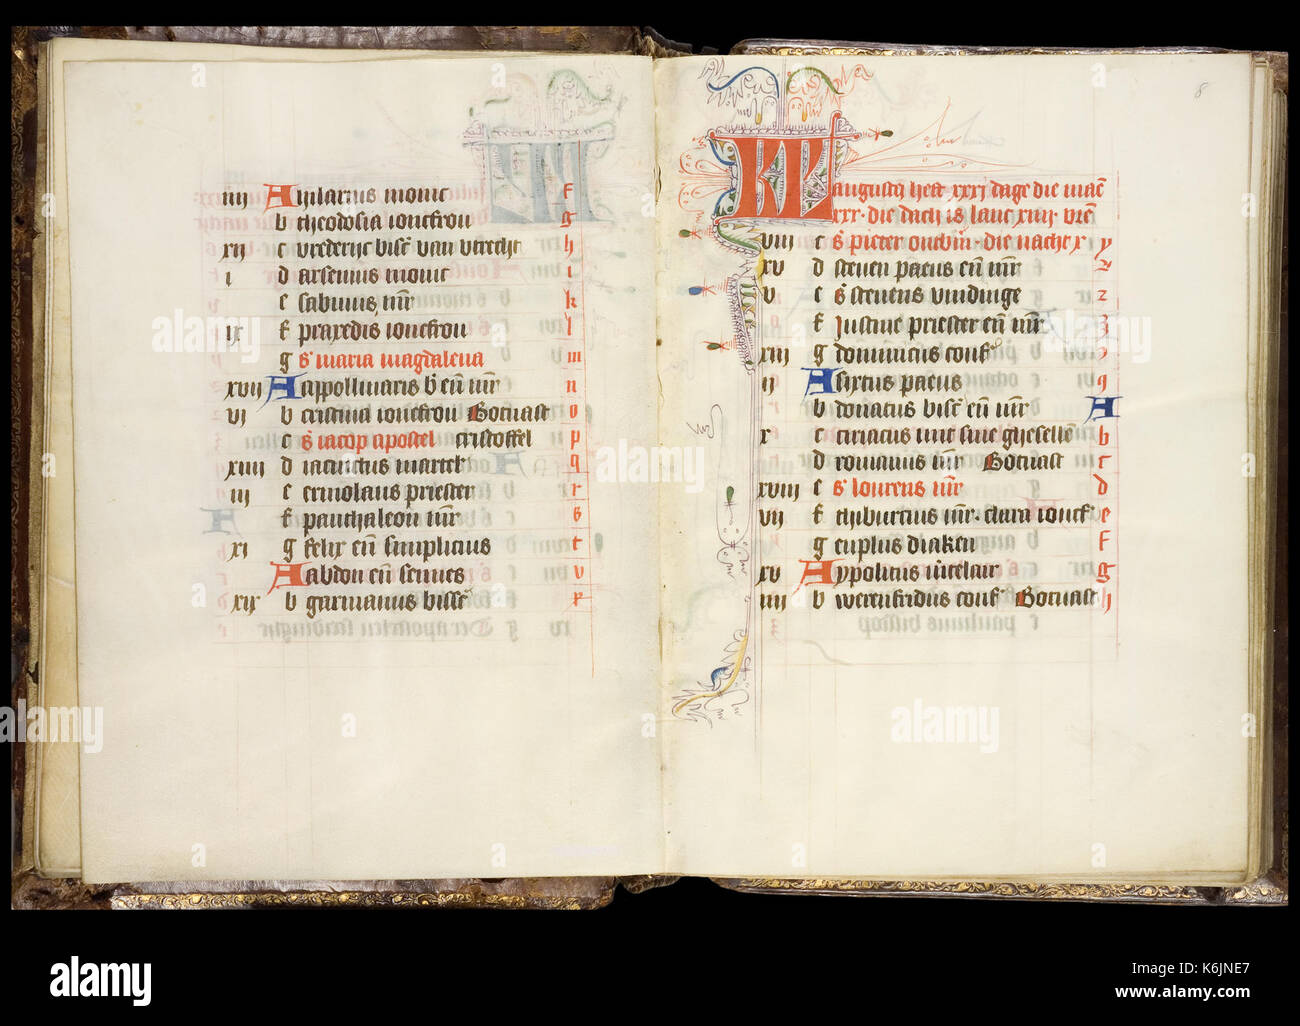 iiij A hilarius monic f
b theodosia ionefrou g
xij c vrederijc bisc van utrecht h
i d arsenius monic i
e sabinus mr k
ix f praxedis ionefrou l
g s maria magdalena m
xvij A appollinaris b en mr n
vi b cristina ionefrou Botuast o
c s iacop apostel cristoffel p
xiiij d iacinctus martel q
iij e ermolaus priester r
f panthaleon mr s
xi g felix en simplicius t
A abdon en sennes v
xix b garmanus bissc x
8
KL augustꝰ heet xxxj dage die maen
xxx. die dach is lanc xiiij vren
viij c s pieter onebin. die nacht x y
xv d steuen paeus en mr z
v e s steuens vindinge z
f Justine priester en mr
xiij g dominicus conf
ij A sixtus paeus 9
b donatus bisc en mr A
x c ciriacus mit sine ghesellen b
d romanus mr Botuast c
xviij e s lourens mr d
vij f thiburtius mr. clara ionf e
g euplus diaken f
xv A ypolitus mr g
iiij b werenfridus conf Botuast h
alamy
alamy
alamy
Image ID: K6JNE7
www.alamy.com